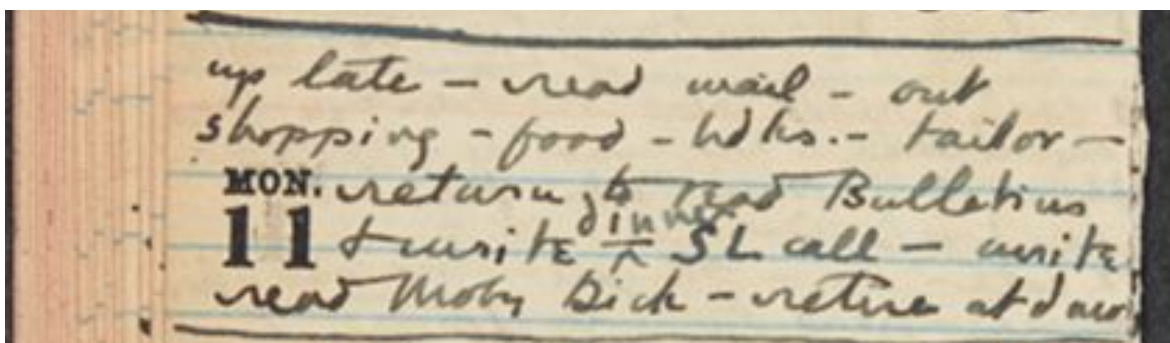 up late - read mail - out
shopping - food - hdks. - tailor -
MON. return to read Bulletins
dinner
11 + write ^ SL call - write
read Moby Dick - retire at dawn